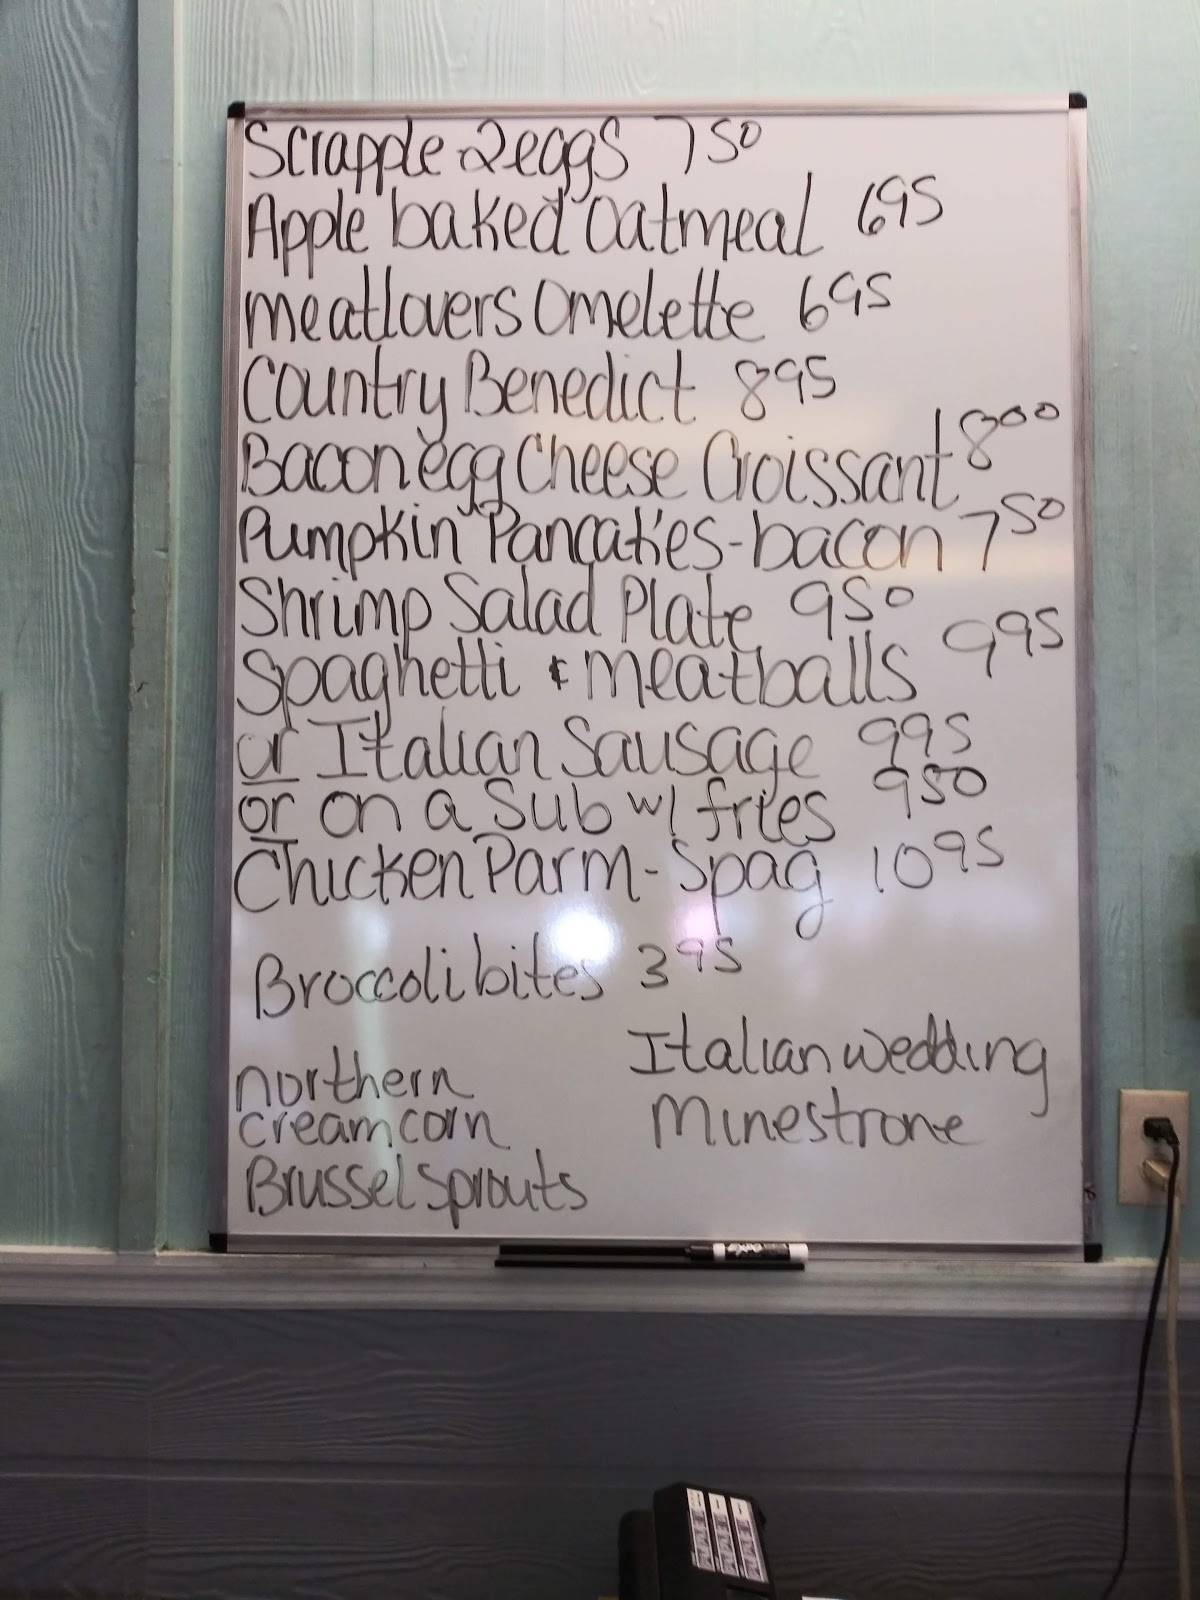 Scrapple 2 eggs 7 50
Apple baked Oatmeal 6 95
meatlovers Omelette 6 95
Country Benedict 8 95
Bacon egg Cheese Croissant 8 00
Pumpkin Pancakes - bacon 7 50
Shrimp Salad Plate 9 50
Spaghetti & meatballs 9 95
or Italian Sausage 9 95
or on a Sub w/ fries 9 50
Chicken Parm - Spag 10 95
Broccoli bites 3 95
northern
cream corn
Brussel sprouts
Italian wedding
Minestrone